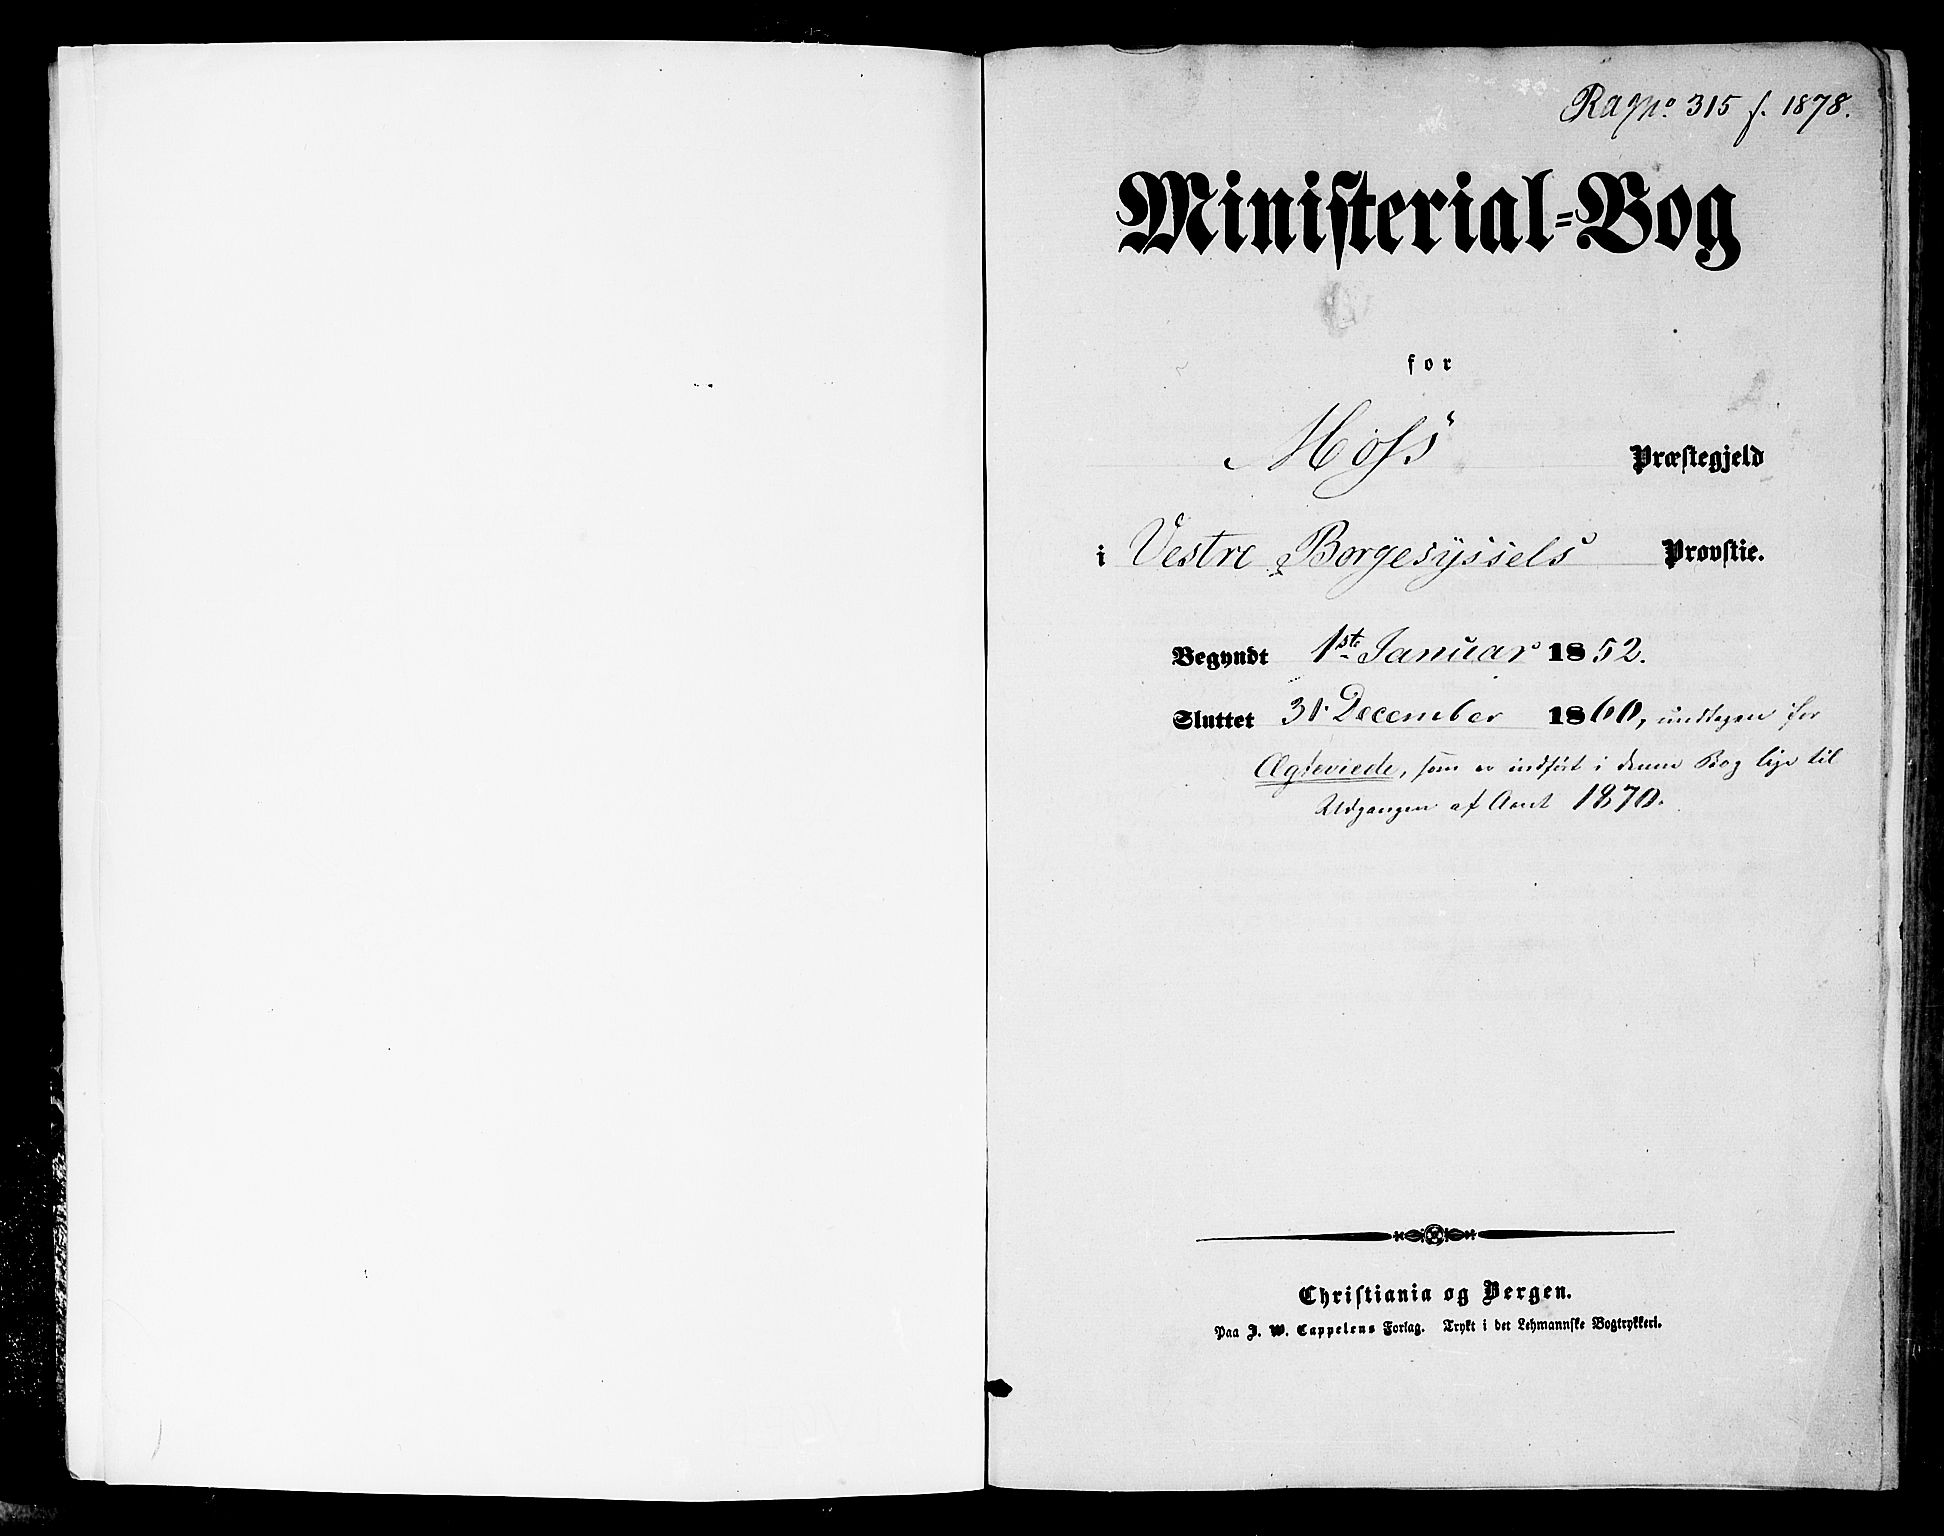 Ragno. 315 f. 1878.
Ministerial-Bog
for
Moss Præstegjeld
i Vestre Borgesyssels Provstie.
Begyndt 1ste Januar 1852.
Sluttet 31. December 1860, undtagen for
Ægteviede, som er indført i denne Bog lige til
Udgangen af Aaret 1870.
Christiania og Bergen.
Paa J. W. Cappelens Forlag. Trykt i det Lehmannske Bogtrykkeri.